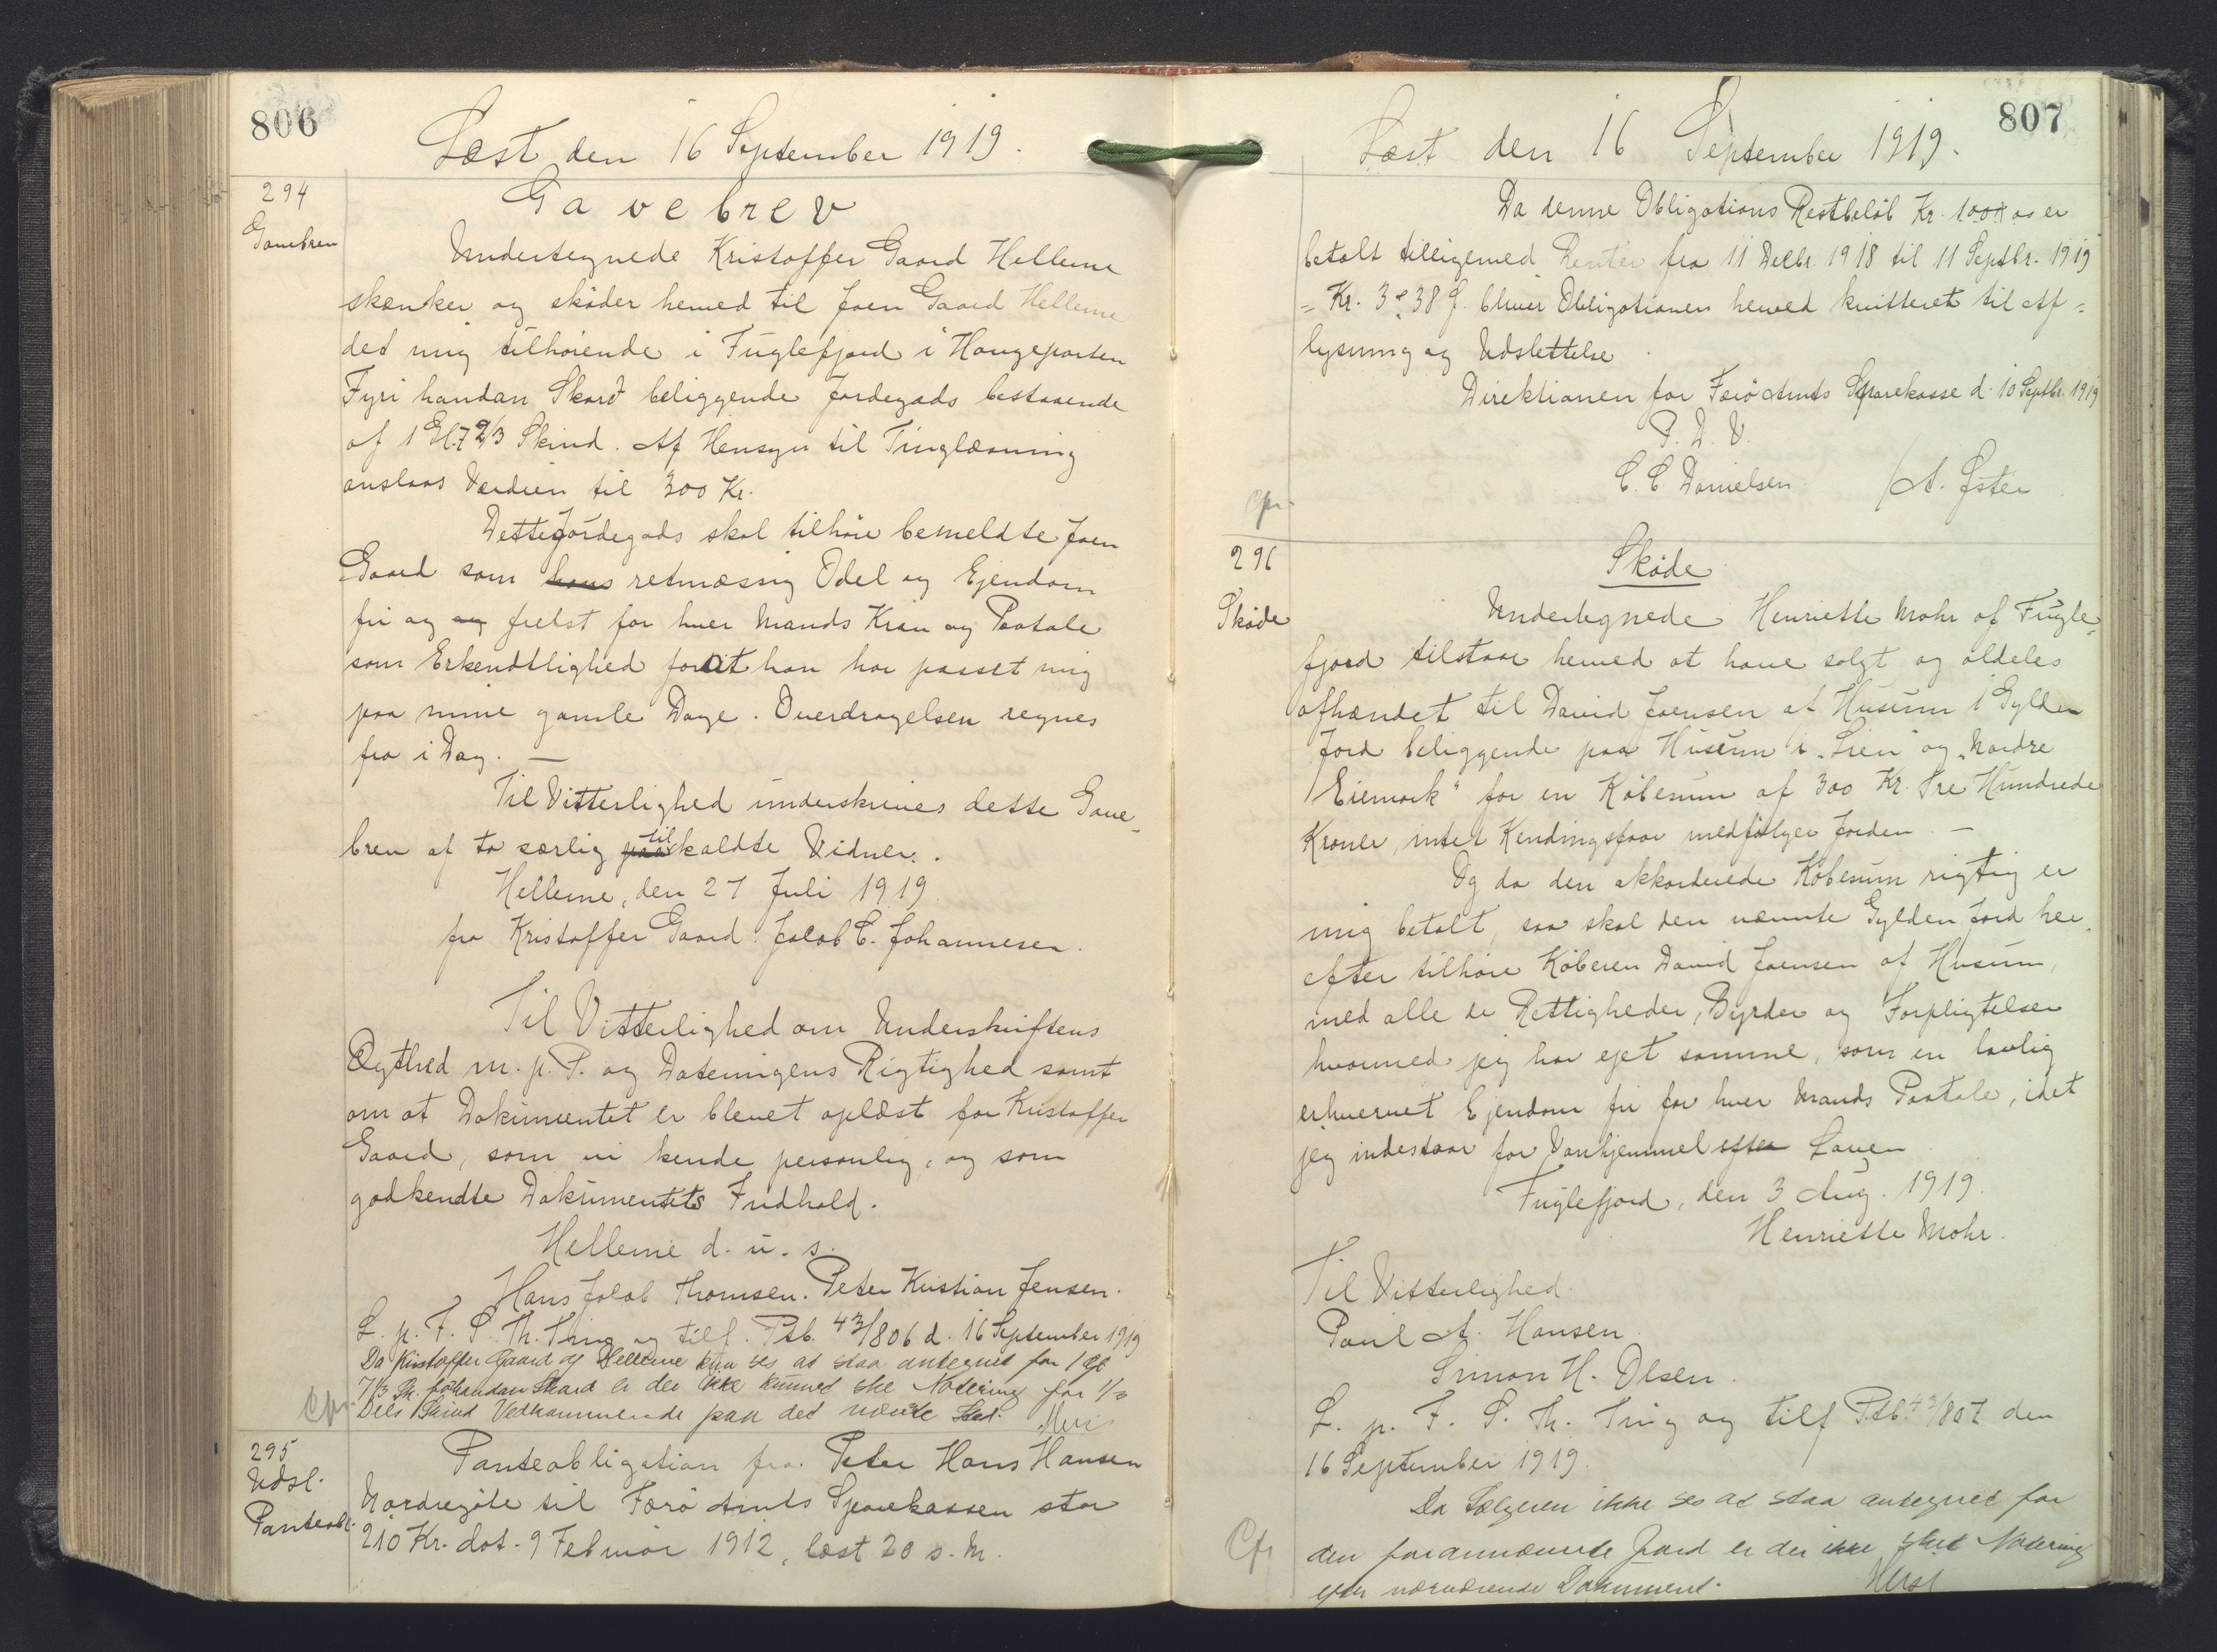 806
Læst den 16 September 1919.
294
Gavebrev
Gavebrev
Undertegnede Kristoffer Gaard Hellerne
skænker og skøder herved til Joen Gaard Hellerne
det mig tilhørende i Fuglefjord i Haugeparten
Fyri handan Skarð beliggende Jordegods bestaaende
af 1 Gl. 7 2/3 Skind. Af Hensyn til Tinglæsning
anslaas Værdien til 300 Kr.
Dette Jordegods skal tilhøre bemeldte Joen
Gaard som hans retmæssig Odel og Ejendom
fri og og frelst for hver Mands Krav og Paatale
som Erkendtlighed for at han har passet mig
paa mine gamle Dage. Overdragelsen regnes
fra i Dag. —
Til Vitterlighed underskrives dette Gave-
brev af to særlig paa til kaldte Vidner.
Hellerne, den 27 Juli 1919.
fra Kristoffer Gaard. Jacob C. Johannesen.
Til Vitterlighed om Underskriftens
Ægthed m. p. P. og Dateringens Rigtighed samt
om at Dokumentet er blevet oplæst for Kristoffer
Gaard, som vi kende personlig, og som
godkendte Dokumentets Indhold.
Hellerne d. u. s.
Hans Jacob Thomsen. Peter Kristian Jensen.
L. p. F. S. Th. Ting og tilf. Ptb. 43/806 d. 16 September 1919
Da Kristoffer Gaard af Hellerne kun ses at staa antegnet for 1 Gl
7 1/3 Sk. handan Skard er der ikke kunnet ske Notering for 1/3
Dels Skind Vedkommende paa det nævnte Sted.
Cfr.
295
Udsl.
Panteobl.
Panteobligation fra Peter Hans Hansen
Nordregøte til Færø Amts Sparekassen stor
210 Kr. dat. 9 Februar 1912, læst 20 s. M.
807
Læst den 16 September 1919.
Da denne Obligations Restbeløb Kr. 100 er
betalt tilligemed Renter fra 11 Decbr. 1918 til 11 Septbr. 1919
= Kr. 3. 38 bliver Obligationen herved kvitteret til Af-
lysning og Udslettelse.
Direktionen for Færø Amts Sparekasse d. 10 Septbr. 1919
P. D. V.
C. C Danielsen / A. Øster
Cfr.
296
Skøde
Skøde
Undertegnede Henriette Mohr af Fugle-
fjord tilstaar herved at have solgt og aldeles
afhændet til David Joensen af Husum 1 Gylden
Jord beliggende paa Husum i „Lien" og „Nordre
Eiemark" for en Købesum af 300 Kr. Tre Hundrede
Kroner, intet Kendingsfaar medfølger Jorden —
Og da den akkorderede Købesum rigtig er
mig betalt, saa skal den nævnte Gylden Jord her-
efter tilhøre Køberen David Joensen af Husum,
med alle de Rettigheder, Byrder og Forpligtelser
hvormed jeg har ejet samme, som en lovlig
erhvervet Ejendom fri for hver Mands Paatale, idet
jeg indestaar for Vanhjemmel efter Loven
Fuglefjord, den 3 Aug. 1919.
Henriette Mohr.
Til Vitterlighed.
Poul A. Hansen.
Simon H. Olsen.
L. p. F. S. Th. Ting og tilf Ptb. 43/807 den
16 September 1919.
Da Sælgeren ikke ses at staa antegnet for
den forannævnte Jord er der ikke sket Notering
efter nærværende Dokument.
Cfr